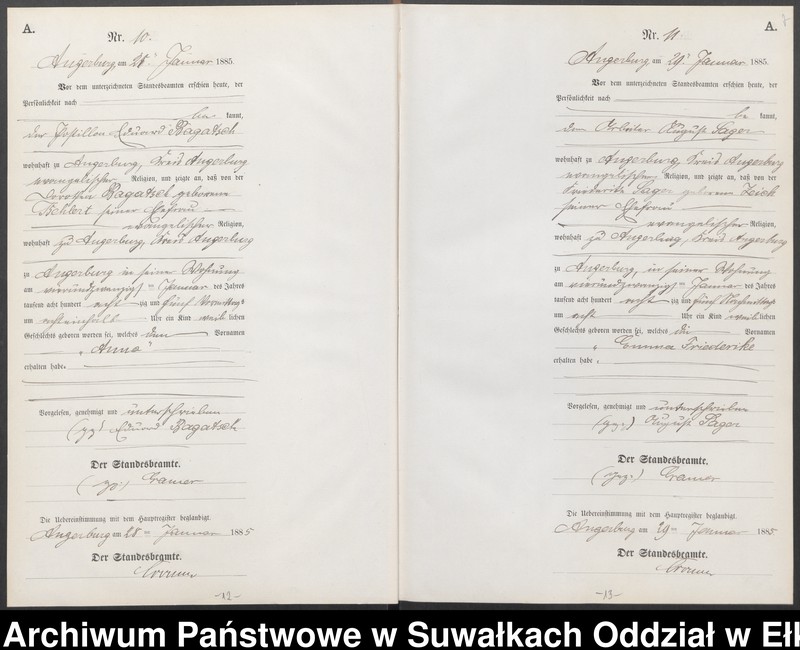 A.
Nr. 10.
Angerburg, am 28ᵗ Januar 1885.
Vor dem unterzeichneten Standesbeamten erschien heute, der
Persönlichkeit nach
be kannt,
der Postillon Eduard Bagatsch
wohnhaft zu Angerburg, Kreis Angerburg
evangelischer Religion, und zeigte an, daß von der
Dorothea Bagatsch geborene
seiner Ehefrau
evangelischer Religion,
wohnhaft zu Angerburg, Kreis Angerburg
zu Angerburg in seiner Wohnung
am vierundzwanzigsten Januar des Jahres
tausend acht hundert acht zig und fünf Vormittags
um achteinhalb Uhr ein Kind weib lichen
Geschlechts geboren worden sei, welches den Vornamen
„Anna"
erhalten habe.
Vorgelesen, genehmigt und unterschrieben
(gz) Eduard Bagatsch
Der Standesbeamte.
(gz.) Cramer
Die Uebereinstimmung mit dem Hauptregister beglaubigt.
Angerburg am 28ten Januar 1885
Der Standesbeamte.
Cramer
-12-
A.
Nr. 11.
Angerburg am 29ᵗ Januar 1885.
Vor dem unterzeichneten Standesbeamten erschien heute, der
Persönlichkeit nach
be kannt,
der Arbeiter August Sager
wohnhaft zu Angerburg, Kreis Angerburg
evangelischer Religion, und zeigte an, daß von der
Sager geborene
seiner Ehefrau
evangelischer Religion,
wohnhaft zu Angerburg, Kreis Angerburg
zu Angerburg, in seiner Wohnung
am vierundzwanzigsten Januar des Jahres
tausend acht hundert acht zig und fünf
um acht Uhr ein Kind weib lichen
Geschlechts geboren worden sei, welches die Vornamen
„ Emma Friederike
erhalten habe.
Vorgelesen, genehmigt und unterschrieben
(gez.) August Sager
Der Standesbeamte.
(gez.) Cramer
Die Uebereinstimmung mit dem Hauptregister beglaubigt.
Angerburg am 29ten Januar 1885
Der Standesbeamte.
Cramer
-13-
Archiwum Państwowe w Suwałkach Oddział w Ełk